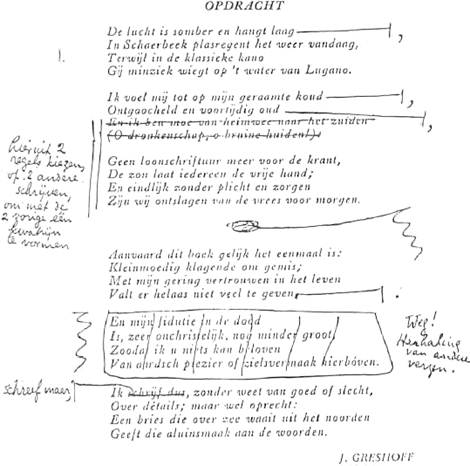 OPDRACHT
De lucht is somber en hangt laag,
1. In Schaerbeek plasregent het weer vandaag,
Terwijl in de klassieke kano
Gij minziek wiegt op 't water van Lugano.
Ik voel mij tot op mijn geraamte koud,
Ontgoocheld en voortijdig oud,
En ik ben moe van heimwee naar het zuiden
(O dronkenschap, o bruine huiden!)
hieruit 2
regels kiezen,
of 2 andere
schrijven,
om met de
2 vorige één
kwatrijn
te vormen
Geen loonschriftuur meer voor de krant,
De zon laat iedereen de vrije hand;
En eindlijk zonder plicht en zorgen
Zijn wij ontslagen van de vrees voor morgen.
Aanvaard dit boek gelijk het eenmaal is:
Kleinmoedig klagende om gemis;
Met mijn gering vertrouwen in het leven
Valt er helaas niet veel te geven.
En mijn fidutie in de dood
Is, zeer onchristelijk, nog minder groot,
Zoodat ik u niets kan beloven
Van aardsch plezier of zielsvermaak hierboven.
Weg!
Herhaling
van andere
verzen.
schreef maar,
Ik schrijf dus, zonder weet van goed of slecht,
Over détails; maar wel oprecht:
Een bries die over zee waait uit het noorden
Geeft die aluinsmaak aan de woorden.
J. GRESHOFF